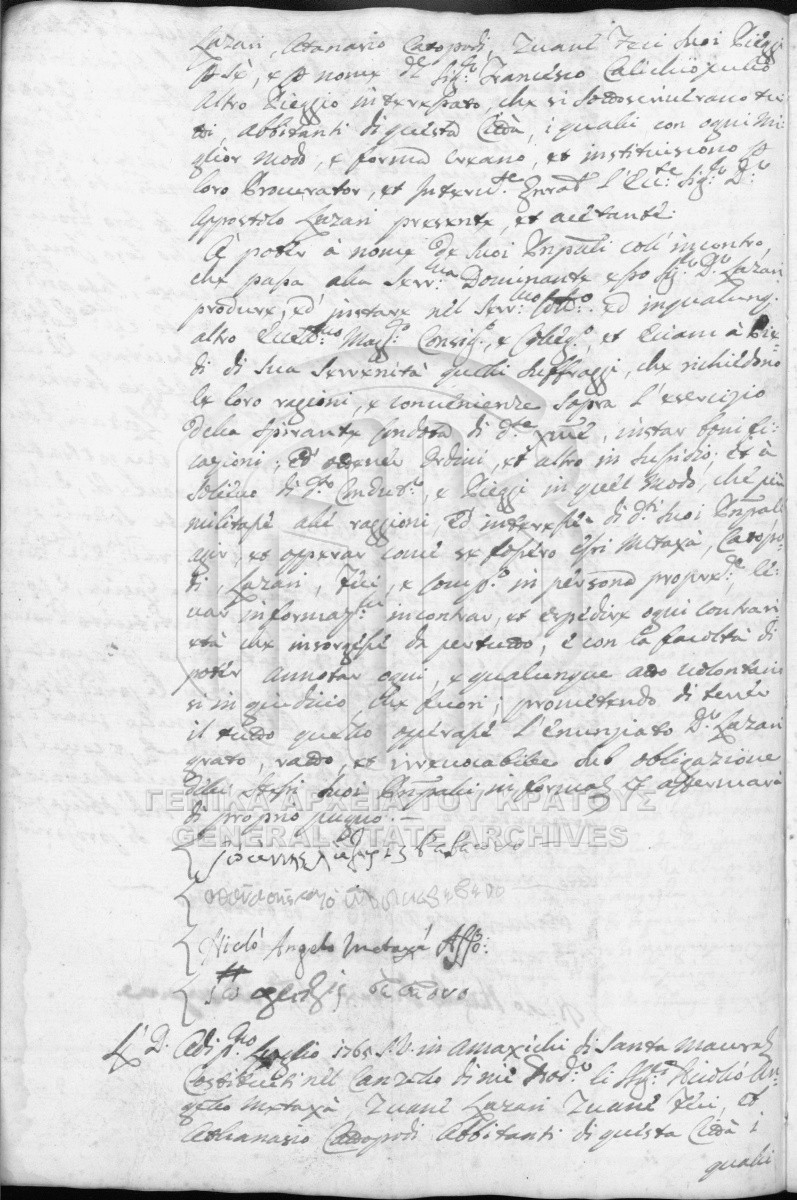 Lazari, Atanasio Catopodi, Zuane Feci suoi Pieggi
p se, e p nome del Sig.r Francesco Calichiopullo
altro Pieggio interessato, che si sottoscriverano tu-
tti, abbitanti di questa Città, i quali con ogni mi-
glior modo, e forma creano, et instituiscono p
loro Procurator, et Interv.te gnral l'Ecc.te Sig.r D.r
Appostolo Lazari presente, et acetante
A poter à nome de suoi Prnpali coll' incontro,
che passa alla Serr.ma Dominante esso Sig.r D.r Lazari
produre, ed' instare nel Serr.mo ed in qualunq.
altro Ecc.mo Mag.to Consig.o, e Colleg.o, et etiam à Pie-
di di Sua Serenità quelli suffraggi, che richiedono
le loro ragioni, e convenienze sopra l'esercizio
della spirante Condotta di d.te, instar bonifi-
cazioni, ed ottener ordini, et altro in susidio, et à
solievo di d.to Condut.r, e Pieggi in quel modo, che più
militasse alle raggioni, ed interesse di d.ti suoi Prnpali
agir, et opperar come se fossero essi Metaxà, Catopo-
di, Lazari, Feci, e Comp.o in persona propria, le-
var informaz.ni incontrar, et espedire ogni contrari-
età che insorgesse da per tutto, e con la facoltà di
poter annotar ogni, e qualunque atto volontario
si in giudicio, che fuori; promettendo di tener
il tutto quello operasse l'enunziato D.r Lazari
grato, ratto, et irrevocabile sub obligazione
delli stessi suoi Prnpali in forma, et affermarà
di proprio pugno.
Ιοανης λαζαρις βεβεονο
αθανασης κατοποδις βεβεονο
Nicolò Angelo Metaxà Affo:
Ιω φετζις βεβεονο
L. D. Adi p.mo Luglio 1765 S.V. in Amaxichi di Santa Maura
Costituiti nel Canzello di me Nod.o li Sig.ri Nicolò An-
gelo Metaxà, Zuane Lazari Zuane Feci, et
Athanasio Cattopodi Abbitanti di questa Città i
quali
ΓΕΝΙΚΑ ΑΡΧΕΙΑ ΤΟΥ ΚΡΑΤΟΥΣ
GENERAL STATE ARCHIVES